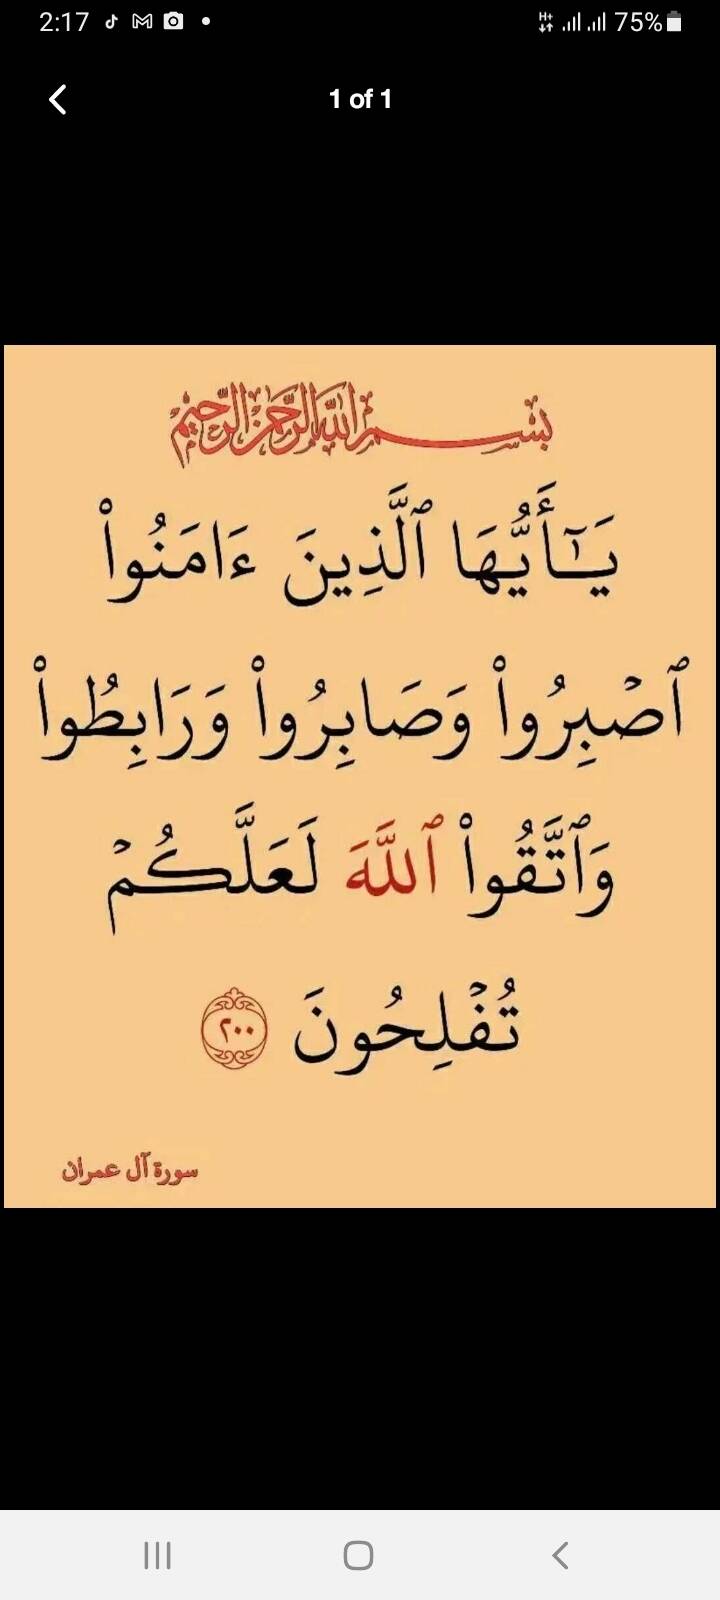 2:17 75%
1 of 1
بسم الله الرحمن الرحيم
يَـٰٓأَيُّهَا ٱلَّذِينَ ءَامَنُوا۟
ٱصْبِرُوا۟ وَصَابِرُوا۟ وَرَابِطُوا۟
وَٱتَّقُوا۟ ٱللَّهَ لَعَلَّكُمْ
تُفْلِحُونَ ٢٠٠
سورة آل عمران